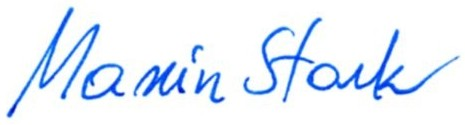 Maxin Stark